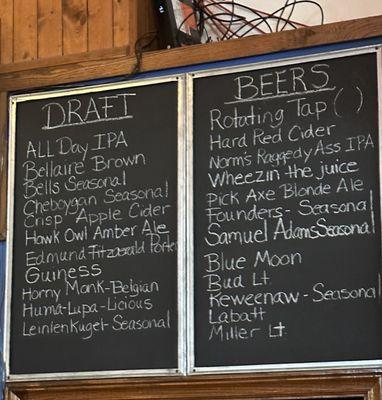 DRAFT
All Day IPA
Bellaire Brown
Bells Seasonal
Cheboygan Seasonal
Crisp Apple Cider
Hawk Owl Amber Ale
Edmund Fitzgerald Porter
Guiness
Horny Monk-Belgian
Huma-Lupa-Licious
Leinlenkugel-Seasonal
BEERS
Rotating Tap ( )
Hard Red Cider
Norm's Raggedy Ass IPA
Wheezin the juice
Pick Axe Blonde Ale
Founders - Seasonal
Samuel Adams Seasonal
Blue Moon
Bud Lt
Keweenaw - Seasonal
Labatt
Miller Lt